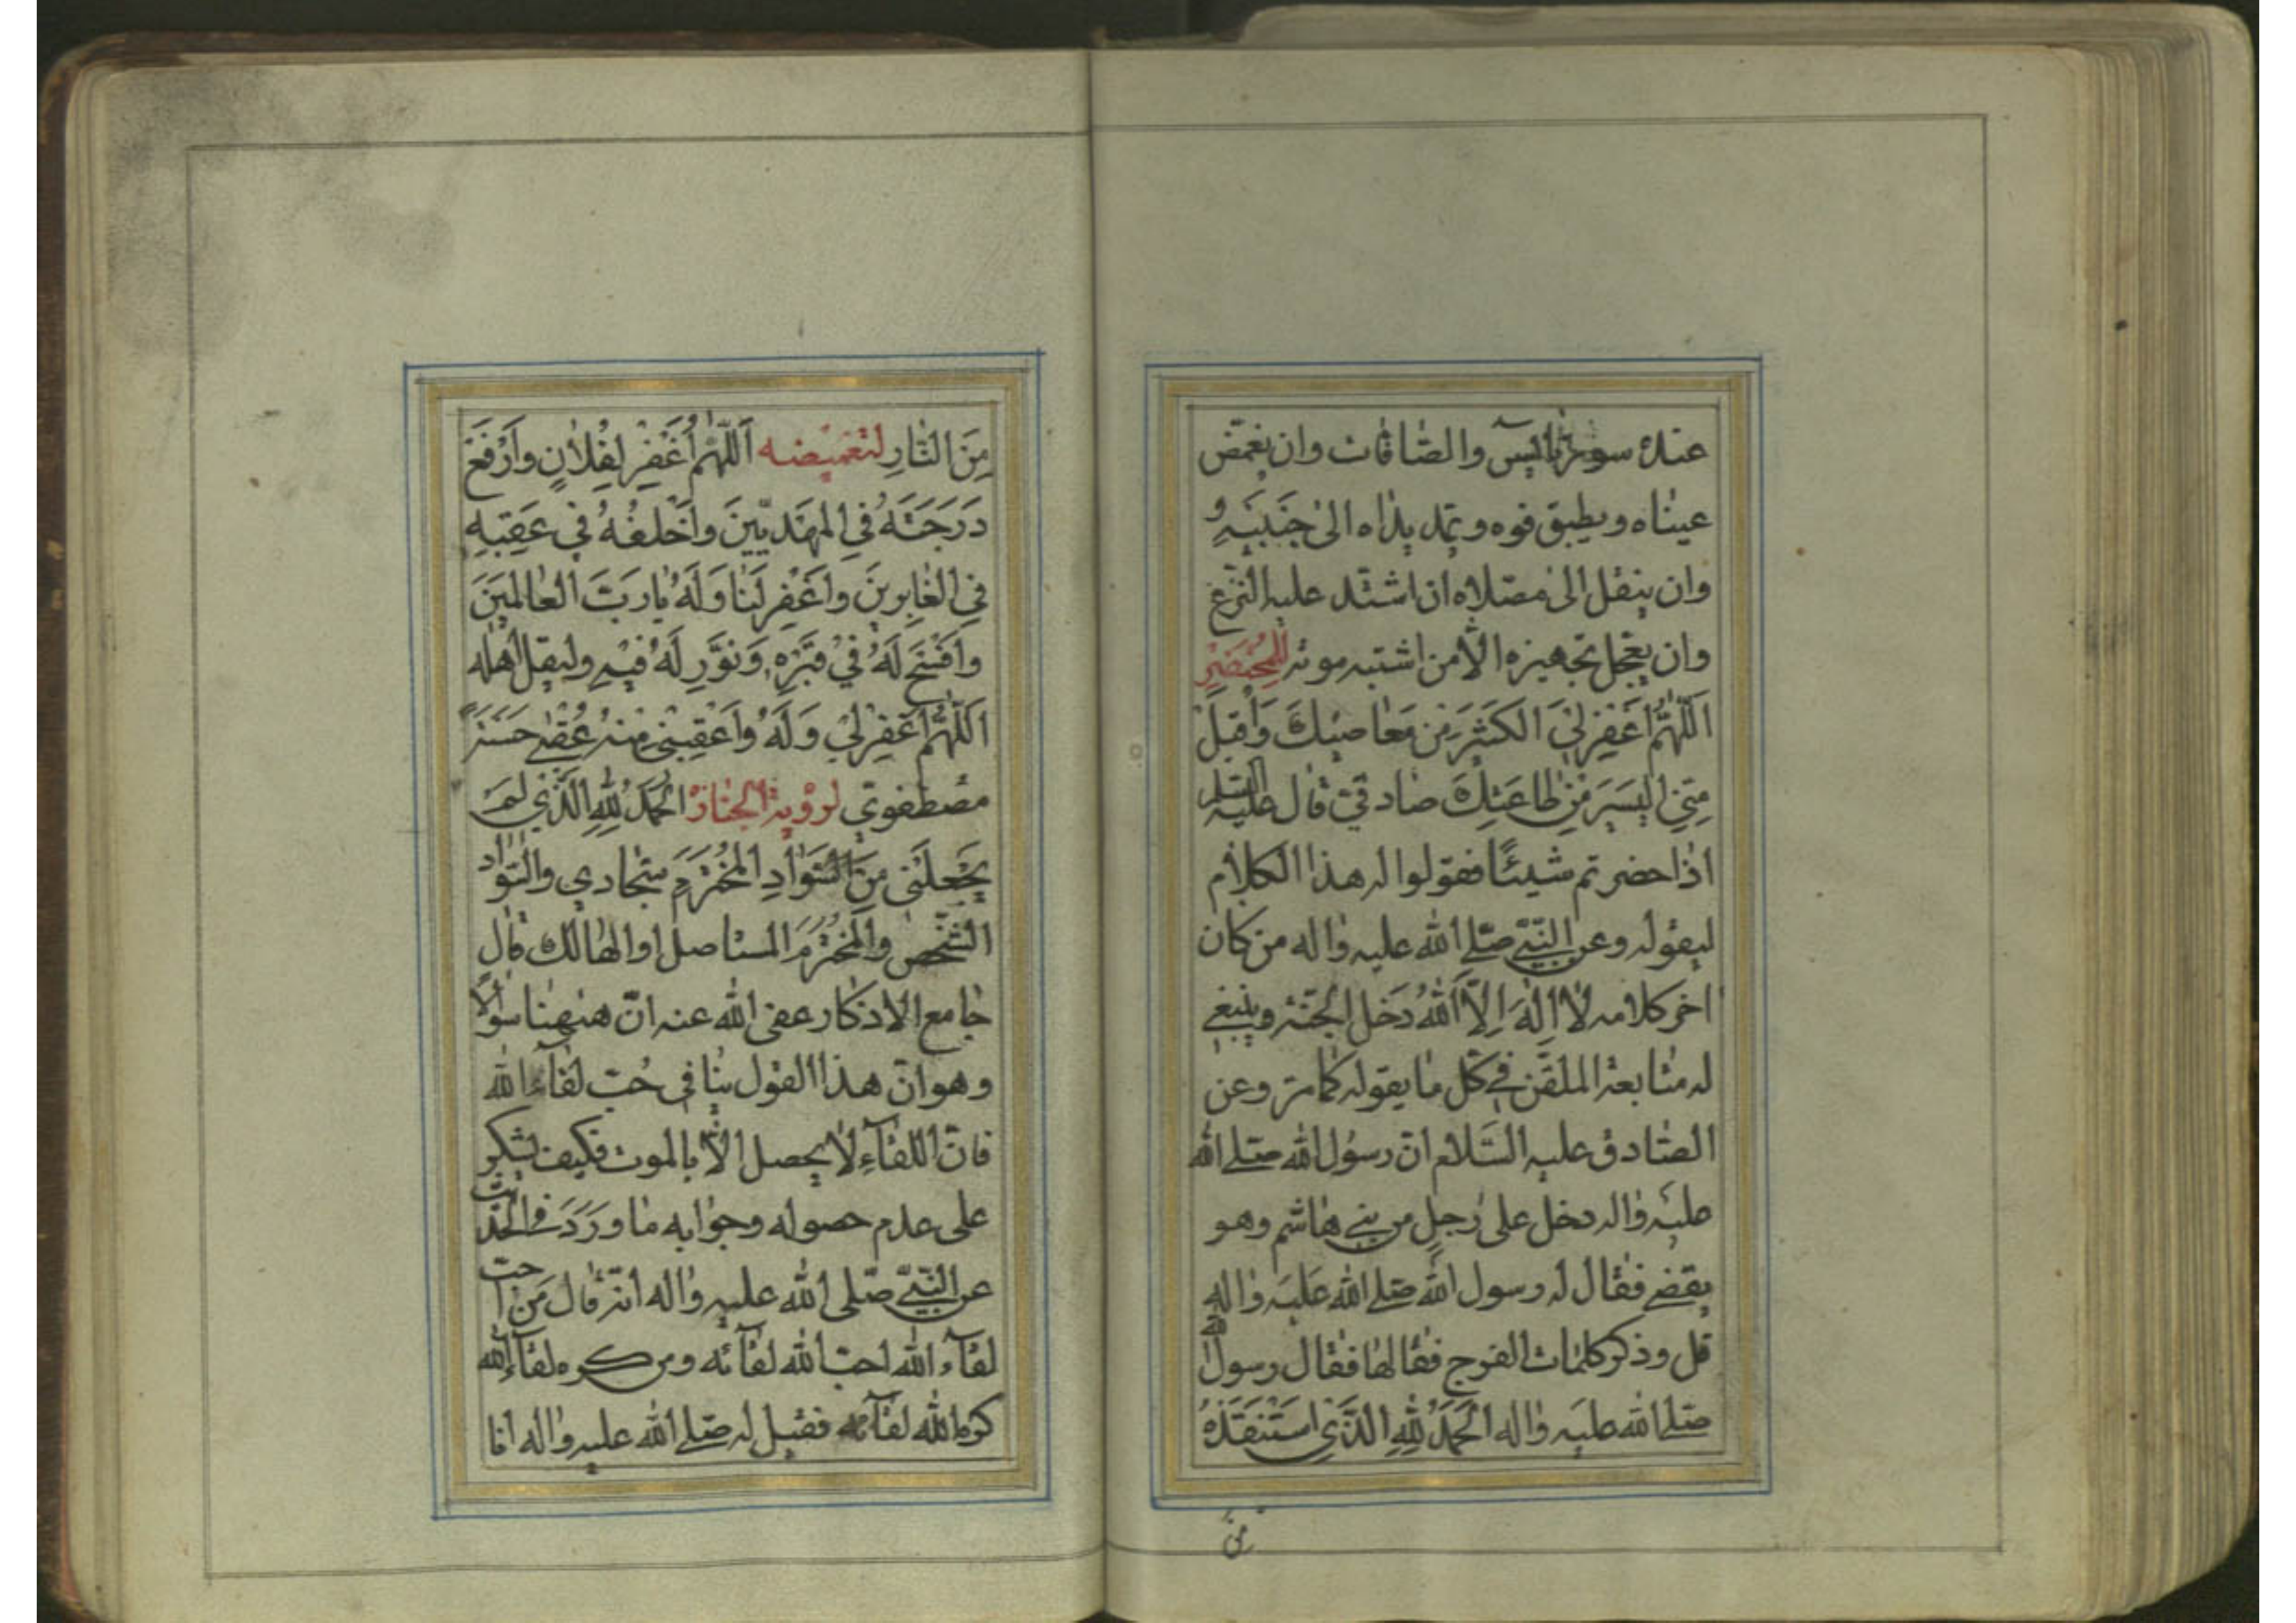 عنده سورتا يس والصافات وان يغمض
عيناه ويطبق فوه وتمد يداه الى جنبيه و
وان ينقل الى مصلاه ان اشتد عليه النزع
وان يعجل تجهيزه الا من اشتبه موته للمحتضر
اَللّٰهُمَّ اغْفِرْ لِيَ الكَثِيرَ مِنْ مَعَاصِيكَ وَاقْبَلْ
مِنِّي اليَسِيرَ مِنْ طَاعَتِكَ صادقي قال عليه السلم
اذا حضرتم شيئًا فقولوا له هذا الكلام
ليقوله وعن النبي صلى الله عليه واله من كان
اخر كلامه لا اِلٰهَ اِلَّا اللهُ دَخل الجنة وينبغي
له متابعة الملقن في كل ما يقوله كما مر وعن
الصادق عليه السَّلام ان رسول الله صلى الله
عليه واله دخل على رجل من بني هاشم وهو
يقضي فقال له رسول الله صلى الله عليه واله
قل وذكر كلمات الفرج فقالها فقال رسول الله
صلى الله عليه واله اَلحَمْدُ لِلّٰهِ الَّذِي اسْتَنْقَذَهُ
من
مِنَ النَّارِ لتغميضه اَللّٰهُمَّ اغْفِرْ لِفُلَانٍ وَارْفَعْ
دَرَجَتَهُ فِي المَهْدِيِّينَ وَاخْلُفْهُ فِي عَقِبِهِ
فِي الغَابِرِينَ وَاغْفِرْ لَنَا وَلَهُ يَا رَبَّ العَالَمِينَ
وَافْسَحْ لَهُ فِي قَبْرِهِ وَنَوِّرْ لَهُ فِيهِ وليقل اهله
اَللّٰهُمَّ اغْفِرْ لِي وَلَهُ وَاَعْقِبْنِي مِنْهُ عُقْبٰى حَسَنَةً
مصطفوي لرؤية الجنازة اَلحَمْدُ لِلّٰهِ الَّذِي لَمْ
يَجْعَلْنِي مِنَ السَّوَادِ المُخْتَرَمِ سجادي والسواد
الشخص والمخترم المستاصل او الهالك قال
جامع الاذكار عفى الله عنه ان هيهنا سؤالا
وهو ان هذا القول ينافي حُب لقاء الله
فان اللقاءِ لا يحصل الا بالموت فكيف يشكر
على عدم حصوله وجوابه ما وَرَدَ في الحديث
عن النبي صلى الله عليه واله انه قال مَن احب
لقاء الله احب الله لقائه ومن كره لقاء الله
كره الله لقائه فقيل له صلى الله عليه واله انا